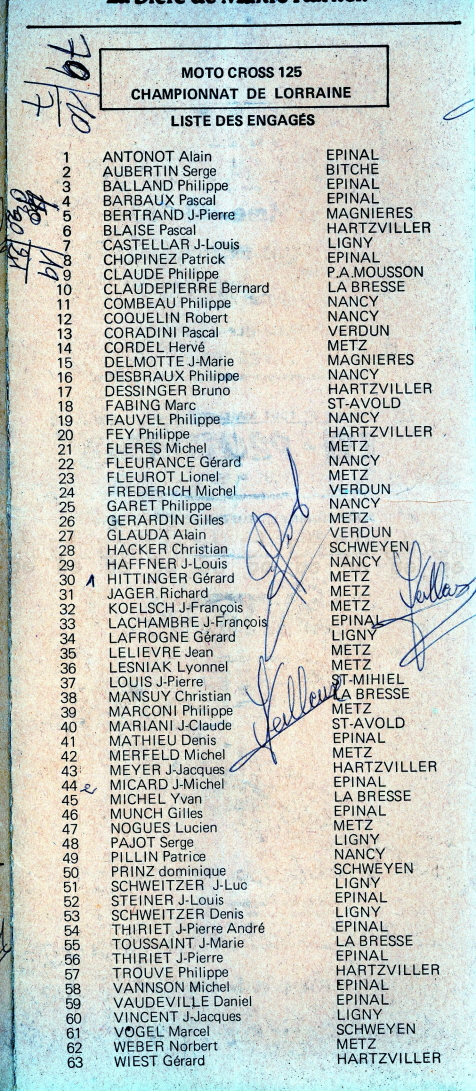 MOTO CROSS 125
CHAMPIONNAT DE LORRAINE
LISTE DES ENGAGÉS
1 ANTONOT Alain EPINAL
2 AUBERTIN Serge BITCHE
3 BALLAND Philippe EPINAL
4 BARBAUX Pascal EPINAL
5 BERTRAND J-Pierre MAGNIERES
6 BLAISE Pascal HARTZVILLER
7 CASTELLAR J-Louis LIGNY
8 CHOPINEZ Patrick EPINAL
9 CLAUDE Philippe P.A.MOUSSON
10 CLAUDEPIERRE Bernard LA BRESSE
11 COMBEAU Philippe NANCY
12 COQUELIN Robert NANCY
13 CORADINI Pascal VERDUN
14 CORDEL Hervé METZ
15 DELMOTTE J-Marie MAGNIERES
16 DESBRAUX Philippe NANCY
17 DESSINGER Bruno HARTZVILLER
18 FABING Marc ST-AVOLD
19 FAUVEL Philippe NANCY
20 FEY Philippe HARTZVILLER
21 FLERES Michel METZ
22 FLEURANCE Gérard NANCY
23 FLEUROT Lionel METZ
24 FREDERICH Michel VERDUN
25 GARET Philippe NANCY
26 GERARDIN Gilles METZ
27 GLAUDA Alain VERDUN
28 HACKER Christian SCHWEYEN
29 HAFFNER J-Louis NANCY
30 1 HITTINGER Gérard METZ
31 JAGER Richard METZ
32 KOELSCH J-François METZ
33 LACHAMBRE J-François EPINAL
34 LAFROGNE Gérard LIGNY
35 LELIEVRE Jean METZ
36 LESNIAK Lyonnel METZ
37 LOUIS J-Pierre ST-MIHIEL
38 MANSUY Christian LA BRESSE
39 MARCONI Philippe METZ
40 MARIANI J-Claude ST-AVOLD
41 MATHIEU Denis EPINAL
42 MERFELD Michel METZ
43 MEYER J-Jacques HARTZVILLER
44 MICARD J-Michel EPINAL
45 MICHEL Yvan LA BRESSE
46 MUNCH Gilles EPINAL
47 NOGUES Lucien METZ
48 PAJOT Serge LIGNY
49 PILLIN Patrice NANCY
50 PRINZ dominique SCHWEYEN
51 SCHWEITZER J-Luc LIGNY
52 STEINER J-Louis EPINAL
53 SCHWEITZER Denis LIGNY
54 THIRIET J-Pierre André EPINAL
55 TOUSSAINT J-Marie LA BRESSE
56 THIRIET J-Pierre EPINAL
57 TROUVE Philippe HARTZVILLER
58 VANNSON Michel EPINAL
59 VAUDEVILLE Daniel EPINAL
60 VINCENT J-Jacques LIGNY
61 VOGEL Marcel SCHWEYEN
62 WEBER Norbert METZ
63 WIEST Gérard HARTZVILLER